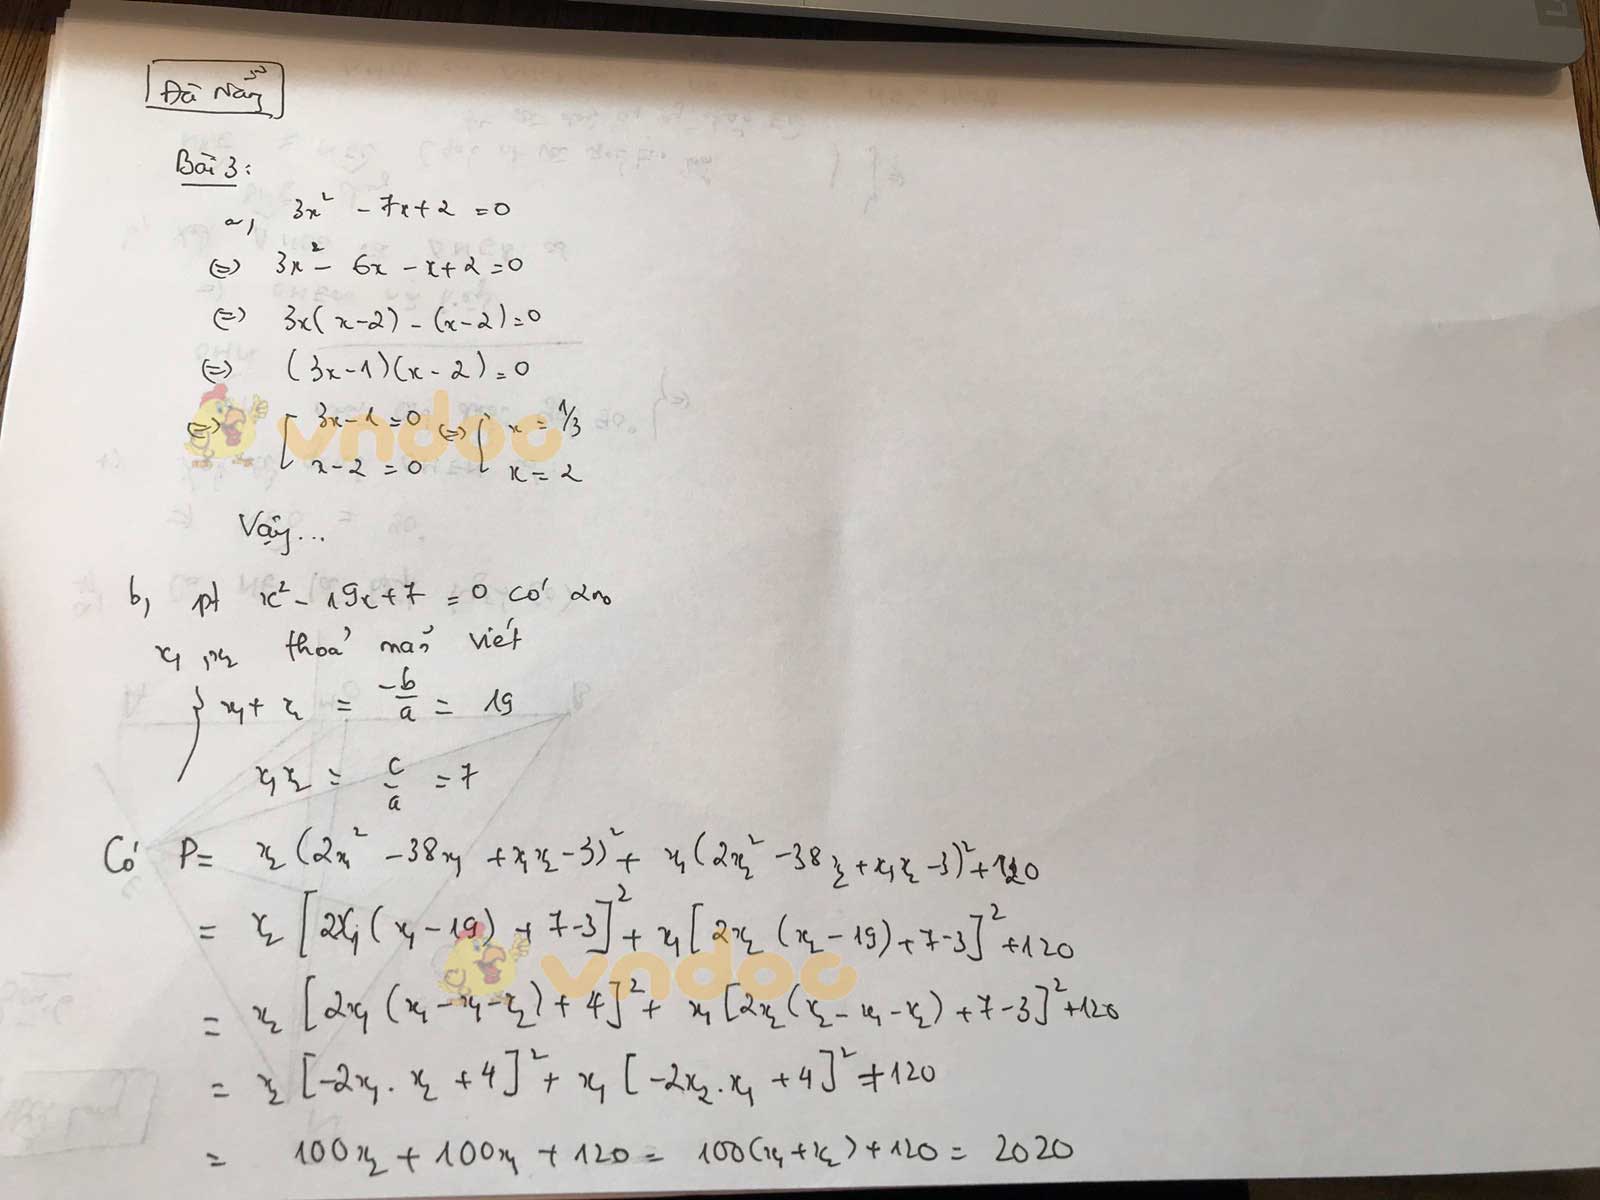 Đà Nẵng
Bài 3:
a, 3x² - 7x + 2 = 0
(=) 3x² - 6x - x + 2 = 0
(=) 3x(x-2) - (x-2) = 0
(=) (3x-1)(x-2) = 0
(=) [ 3x-1 = 0 (=) [ x = 1/3
x-2 = 0 x = 2
vndoc
Vậy...
b, pt x² - 19x + 7 = 0 có 2no
x₁, x₂ thoả mãn viét
{ x₁ + x₂ = -b/a = 19
x₁x₂ = c/a = 7
Có P = x₂(2x₁² - 38x₁ + x₁x₂ - 3)² + x₁(2x₂² - 38x₂ + x₁x₂ - 3)² + 120
= x₂[2x₁(x₁ - 19) + 7-3]² + x₁[2x₂(x₂ - 19) + 7-3]² + 120
vndoc
= x₂[2x₁(x₁ - x₁ - x₂) + 4]² + x₁[2x₂(x₂ - x₁ - x₂) + 7-3]² + 120
= x₂[-2x₁.x₂ + 4]² + x₁[-2x₂.x₁ + 4]² + 120
= 100x₂ + 100x₁ + 120 = 100(x₁ + x₂) + 120 = 2020